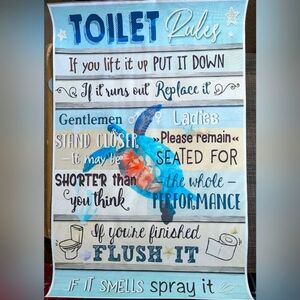 TOILET Rules
If you lift it up PUT IT DOWN
If it runs out Replace it
Gentlemen
STAND CLOSER
– it may be –
SHORTER than
you think
Ladies
Please remain
SEATED FOR
– the whole –
PERFORMANCE
If you're finished
FLUSH IT
IF IT SMELLS spray it